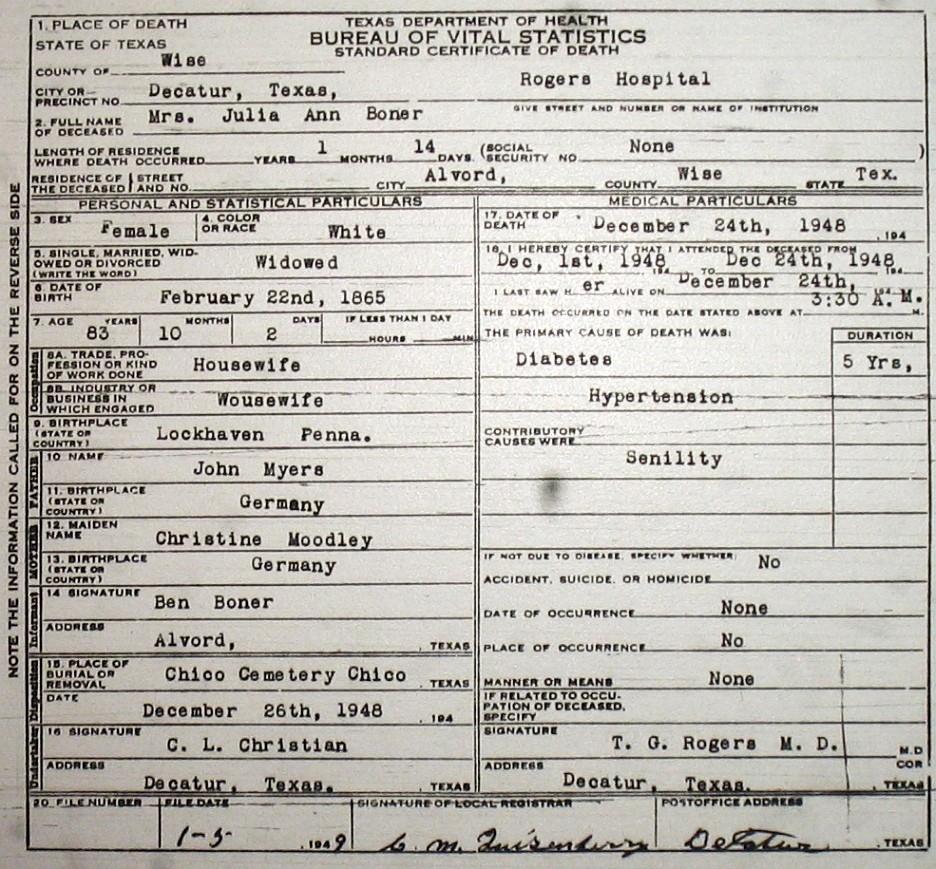 1. PLACE OF DEATH
TEXAS DEPARTMENT OF HEALTH
BUREAU OF VITAL STATISTICS
STANDARD CERTIFICATE OF DEATH
STATE OF TEXAS
COUNTY OF Wise
CITY OR PRECINCT NO. Decatur, Texas,
Rogers Hospital
GIVE STREET AND NUMBER OR NAME OF INSTITUTION
2. FULL NAME OF DECEASED Mrs. Julia Ann Boner
LENGTH OF RESIDENCE WHERE DEATH OCCURRED YEARS 1 MONTHS 14 DAYS. (SOCIAL SECURITY NO. None )
RESIDENCE OF THE DECEASED STREET AND NO. CITY Alvord, COUNTY Wise STATE Tex.
NOTE THE INFORMATION CALLED FOR ON THE REVERSE SIDE
PERSONAL AND STATISTICAL PARTICULARS
3. SEX Female 4. COLOR OR RACE White
5. SINGLE, MARRIED, WIDOWED OR DIVORCED (WRITE THE WORD) Widowed
6. DATE OF BIRTH February 22nd, 1865
7. AGE 83 YEARS 10 MONTHS 2 DAYS IF LESS THAN 1 DAY HOURS MIN
Occupation
8A. TRADE, PROFESSION OR KIND OF WORK DONE Housewife
8B. INDUSTRY OR BUSINESS IN WHICH ENGAGED Wousewife
9. BIRTHPLACE (STATE OR COUNTRY) Lockhaven Penna.
FATHER
10 NAME John Myers
11. BIRTHPLACE (STATE OR COUNTRY) Germany
MOTHER
12. MAIDEN NAME Christine Moodley
13. BIRTHPLACE (STATE OR COUNTRY) Germany
Informant
14 SIGNATURE Ben Boner
ADDRESS Alvord, , TEXAS
Disposition
15. PLACE OF BURIAL OR REMOVAL Chico Cemetery Chico , TEXAS
DATE December 26th, 1948 , 194
Undertaker
16 SIGNATURE C. L. Christian
ADDRESS Decatur, Texas. , TEXAS
MEDICAL PARTICULARS
17. DATE OF DEATH December 24th, 1948 , 194
18. I HEREBY CERTIFY THAT I ATTENDED THE DECEASED FROM
Dec, 1st, 1948 194 TO Dec 24th, 1948 194
I LAST SAW H er ALIVE ON December 24th, 194
THE DEATH OCCURRED ON THE DATE STATED ABOVE AT 3:30 A. M. M.
THE PRIMARY CAUSE OF DEATH WAS: DURATION
Diabetes 5 Yrs,
Hypertension
CONTRIBUTORY CAUSES WERE
Senility
IF NOT DUE TO DISEASE, SPECIFY WHETHER:
ACCIDENT, SUICIDE, OR HOMICIDE No
DATE OF OCCURRENCE None
PLACE OF OCCURRENCE No
MANNER OR MEANS None
IF RELATED TO OCCUPATION OF DECEASED, SPECIFY
SIGNATURE T. G. Rogers M. D. M.D
COR
ADDRESS Decatur, Texas. , TEXAS
20. FILE NUMBER FILE DATE SIGNATURE OF LOCAL REGISTRAR POSTOFFICE ADDRESS
1-5 , 1949 C. M. Quisenberry Decatur , TEXAS